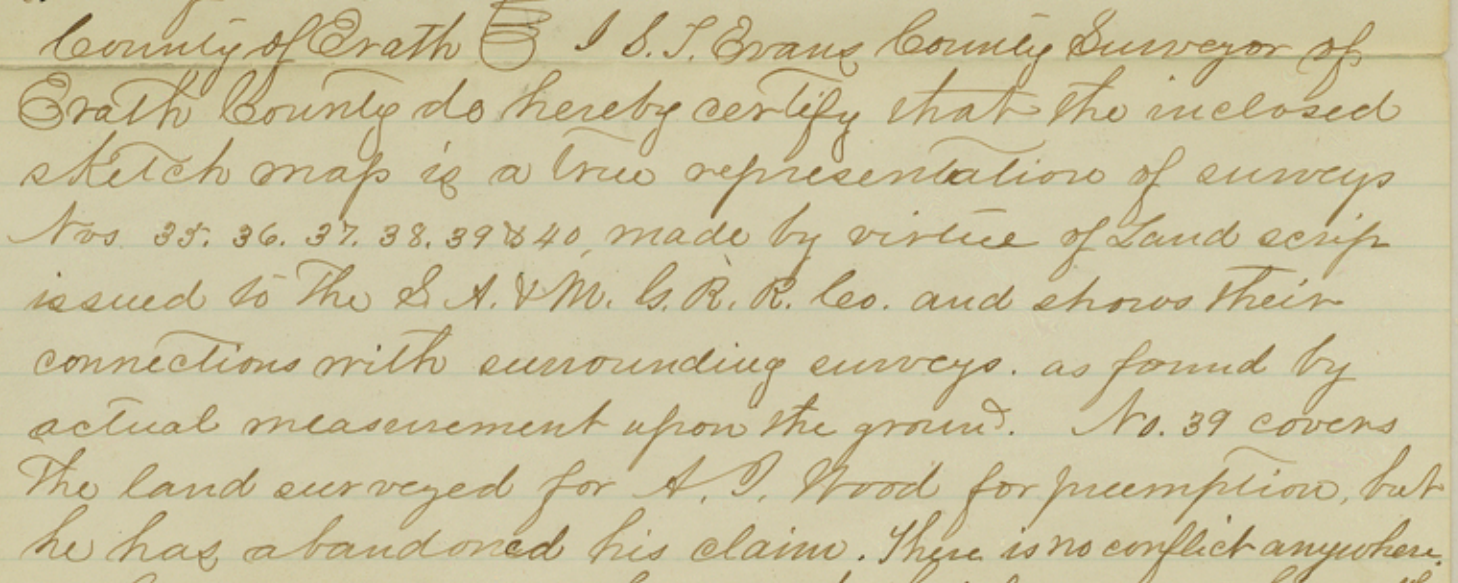 County of Erath I S. T. Evans County Surveyor of
Erath County do hereby certify that the inclosed
sketch map is a true representation of surveys
Nos 35. 36. 37. 38. 39 & 40, made by virtue of Land scrip
issued to The S A. & M. G. R. R. Co. and shows their
connections with surrounding surveys. as found by
actual measurement upon the ground. No. 39 covers
The land surveyed for A. J. Wood for preemption, but
he has abandoned his claim. There is no conflict anywhere.